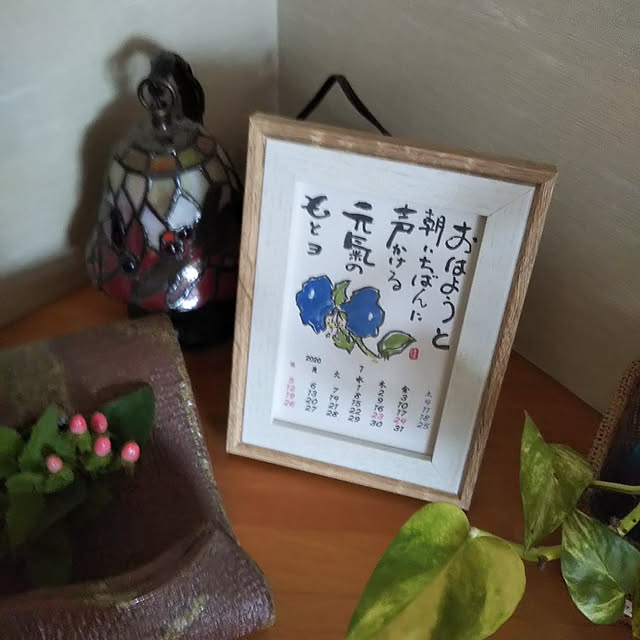 おはようと
朝いちばんに
声かける
元氣の
もとヨ
2020 7
日 月 火 水 木 金 土
1 2 3 4
5 6 7 8 9 10 11
12 13 14 15 16 17 18
19 20 21 22 23 24 25
26 27 28 29 30 31